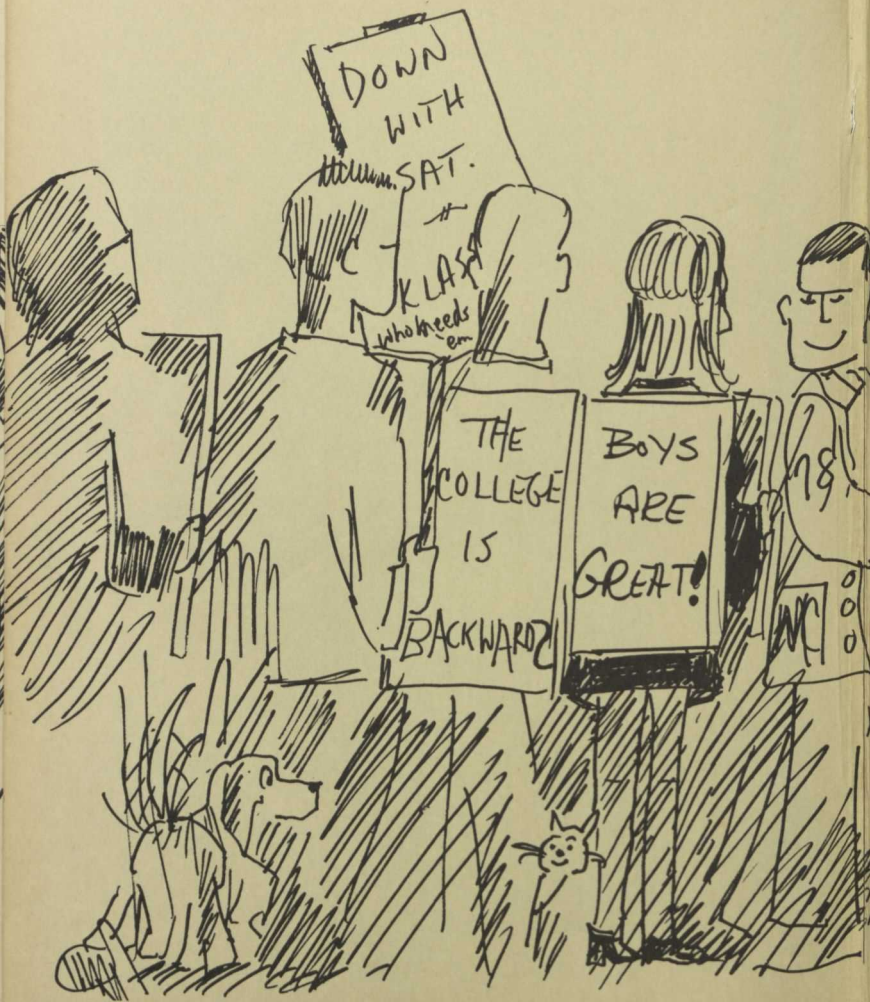 DOWN
WITH
SAT.
KLASS
who kneeds
'em
THE
COLLEGE
IS
BACKWARDS
BOYS
ARE
GREAT!
78
NC